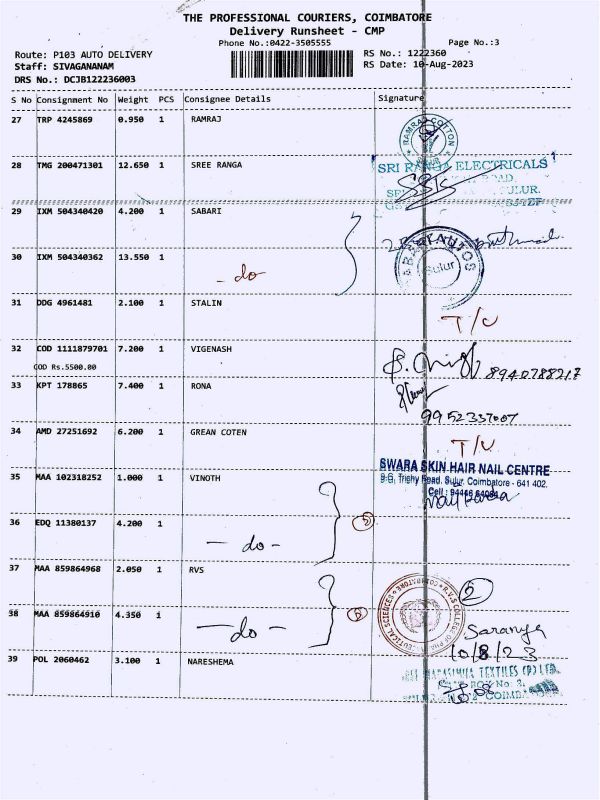 THE PROFESSIONAL COURIERS, COIMBATORE
Delivery Runsheet - CMP
Phone No.:0422-3505555
Page No.:3
Route: P103 AUTO DELIVERY
RS No.: 1222360
Staff: SIVAGANANAM
RS Date: 10-Aug-2023
DRS No.: DCJB122236003
S No Consignment No Weight PCS Consignee Details Signature
27 TRP 4245869 0.950 1 RAMRAJ
RAMRAJ COTTON
28 TMG 200471301 12.650 1 SREE RANGA
SRI RANGA ELECTRICALS
SULUR.
29 IXM 504340420 4.200 1 SABARI
30 IXM 504340362 13.550 1
- do
Sulur
31 DDG 4961481 2.100 1 STALIN
T/U
32 COD 1111879701 7.200 1 VIGENASH
COD Rs.5500.00
8940788217
33 KPT 178865 7.400 1 RONA
9952337007
34 AMD 27251692 6.200 1 GREAN COTEN
T/U
35 MAA 102318252 1.000 1 VINOTH
SWARA SKIN HAIR NAIL CENTRE
Trichy Road, Sulur, Coimbatore - 641 402.
36 EDQ 11380137 4.200 1
- do -
37 MAA 859864968 2.050 1 RVS
2
38 MAA 859864910 4.350 1
- do -
Saranya
10/8/23
39 POL 2060462 3.100 1 NARESHEMA
TEXTILES (P) LTD.